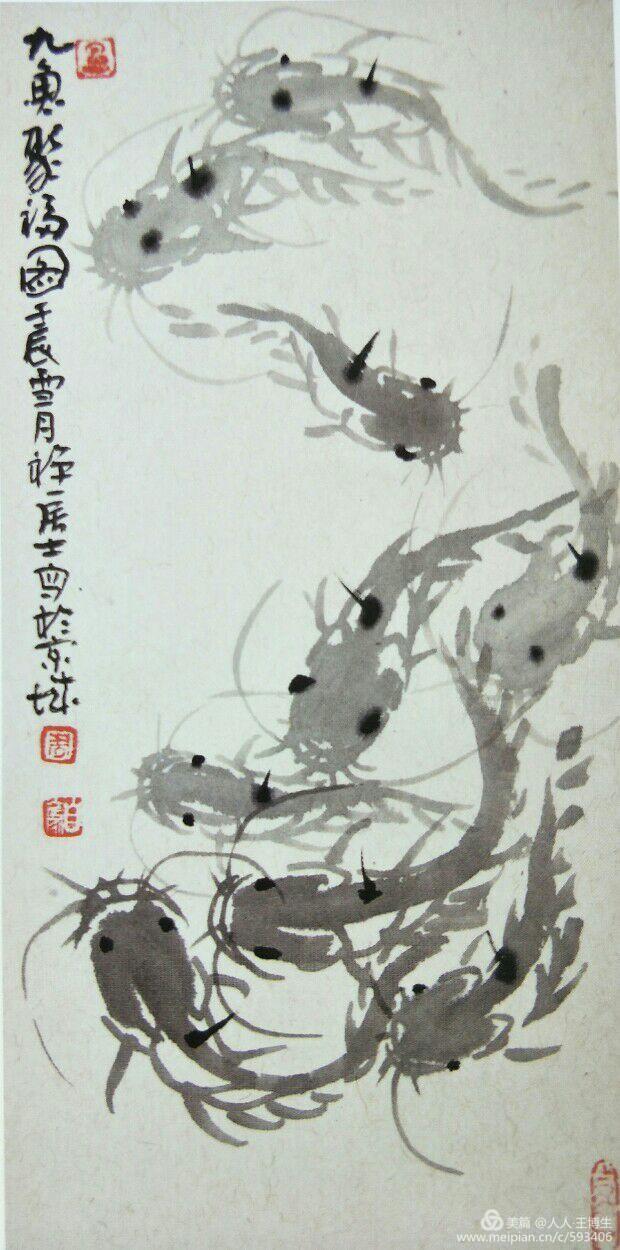 九鱼聚福图壬辰雪月禅一居士写於京城
美篇 @人人·王博生
www.meipian.cn/c/593406